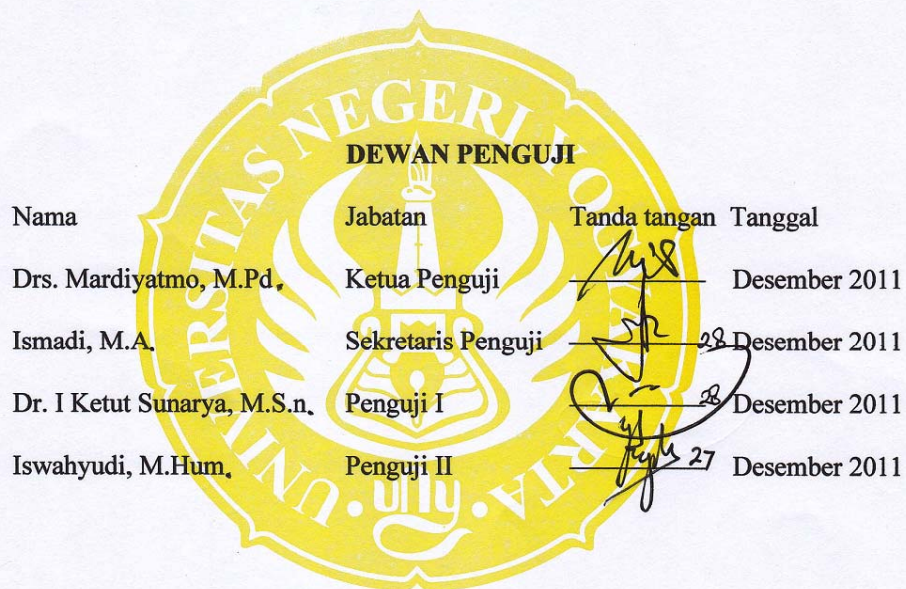 UNIVERSITAS NEGERI YOGYAKARTA
DEWAN PENGUJI
Nama Jabatan Tanda tangan Tanggal
Drs. Mardiyatmo, M.Pd. Ketua Penguji Desember 2011
Ismadi, M.A. Sekretaris Penguji 28 Desember 2011
Dr. I Ketut Sunarya, M.S.n. Penguji I 28 Desember 2011
Iswahyudi, M.Hum. Penguji II 27 Desember 2011
uny